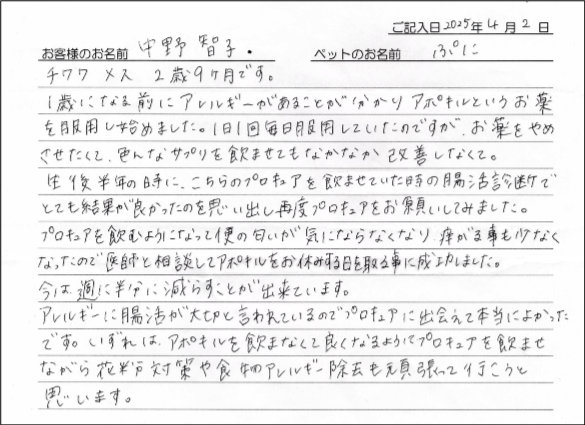 ご記入日 2025年 4月 2日
お客様のお名前 中野 智子. ペットのお名前 ぷに
チワワ メス 2歳9ヶ月です。
1歳になる前にアレルギーがあることが分かり アポキルというお薬
を服用し始めました。1日1回毎日服用していたのですが、お薬をやめ
させたくて、色んなサプリを飲ませてもなかなか改善しなくて。
生後半年の時に、こちらのプロキュアを飲ませていた時の腸活診断で
とても結果が良かったのを思い出し再度プロキュアをお願いしてみました。
プロキュアを飲むようになって便の匂いが気にならなくなり、痒がる事も少なく
なったので医師と相談してアポキルをお休みする日を取る事に成功しました。
今は週に半分に減らすことが出来ています。
アレルギーに腸活が大切と言われているのでプロキュアに出会えて本当によかった
です。いずれは、アポキルを飲まなくて良くなるようにプロキュアを飲ませ
ながら花粉対策や食物アレルギー除去も頑張って行こうと
思います。